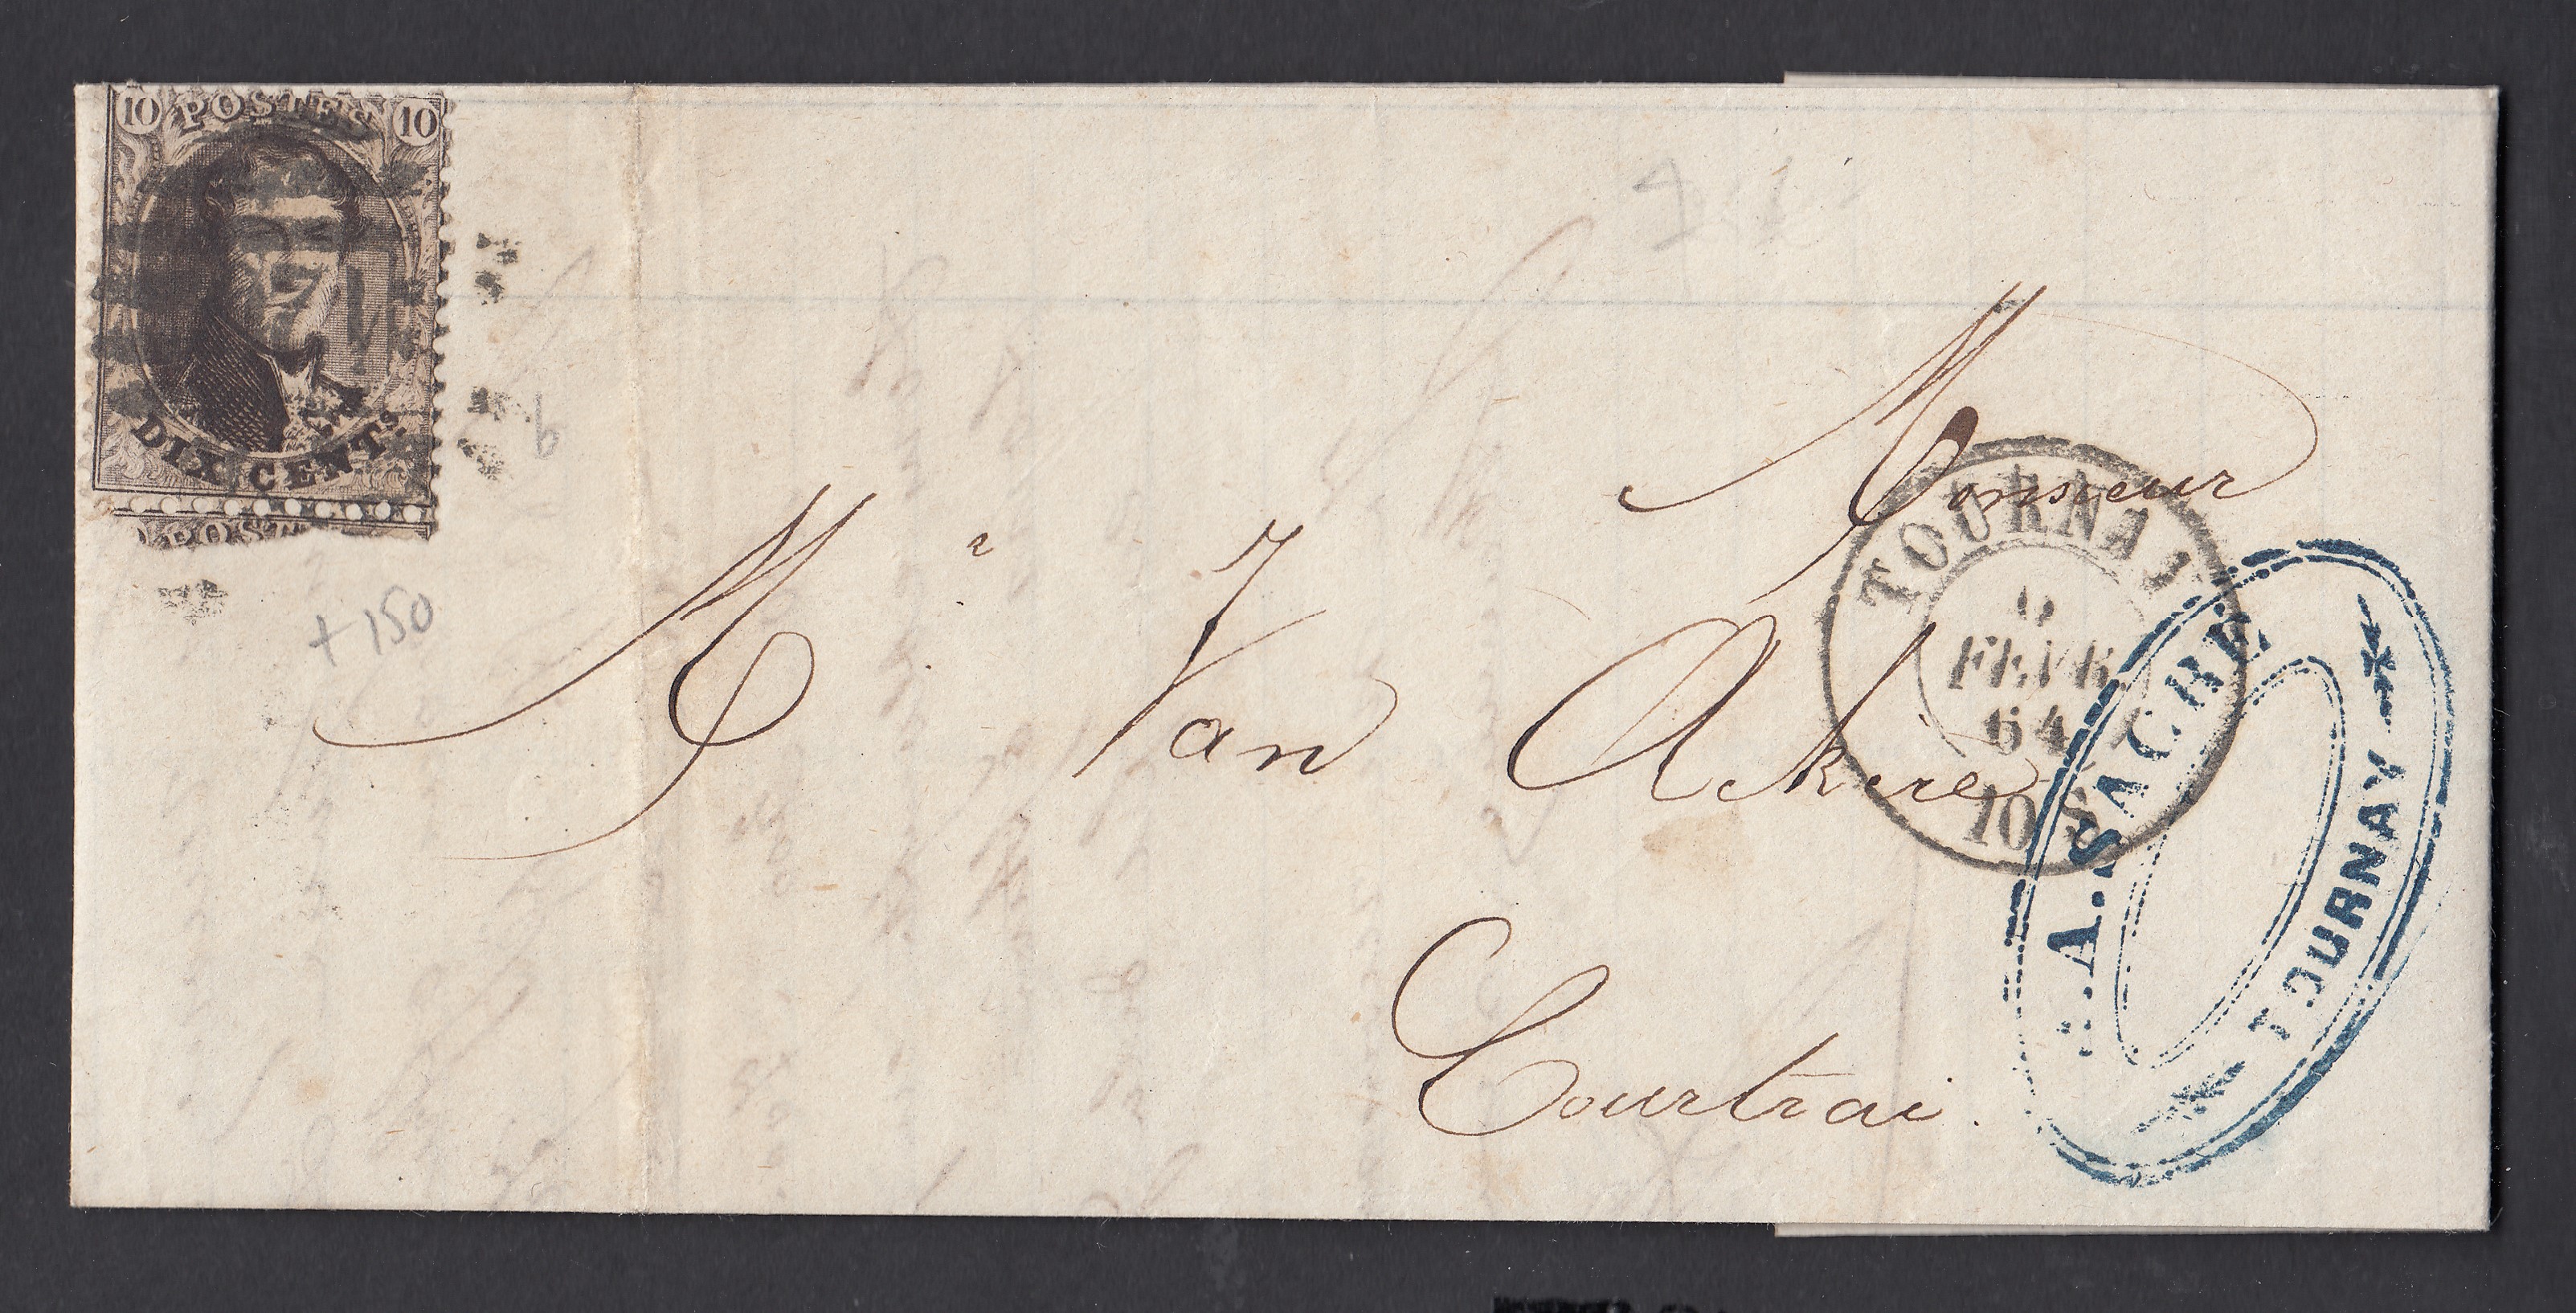 10 POSTES 10
DIX CENTS
POST
+150
b
Monsieur
Mr Van Ackere
Courtrai.
TOURNAI
FEVR
64
10 S
A. SACRÉ
TOURNAY